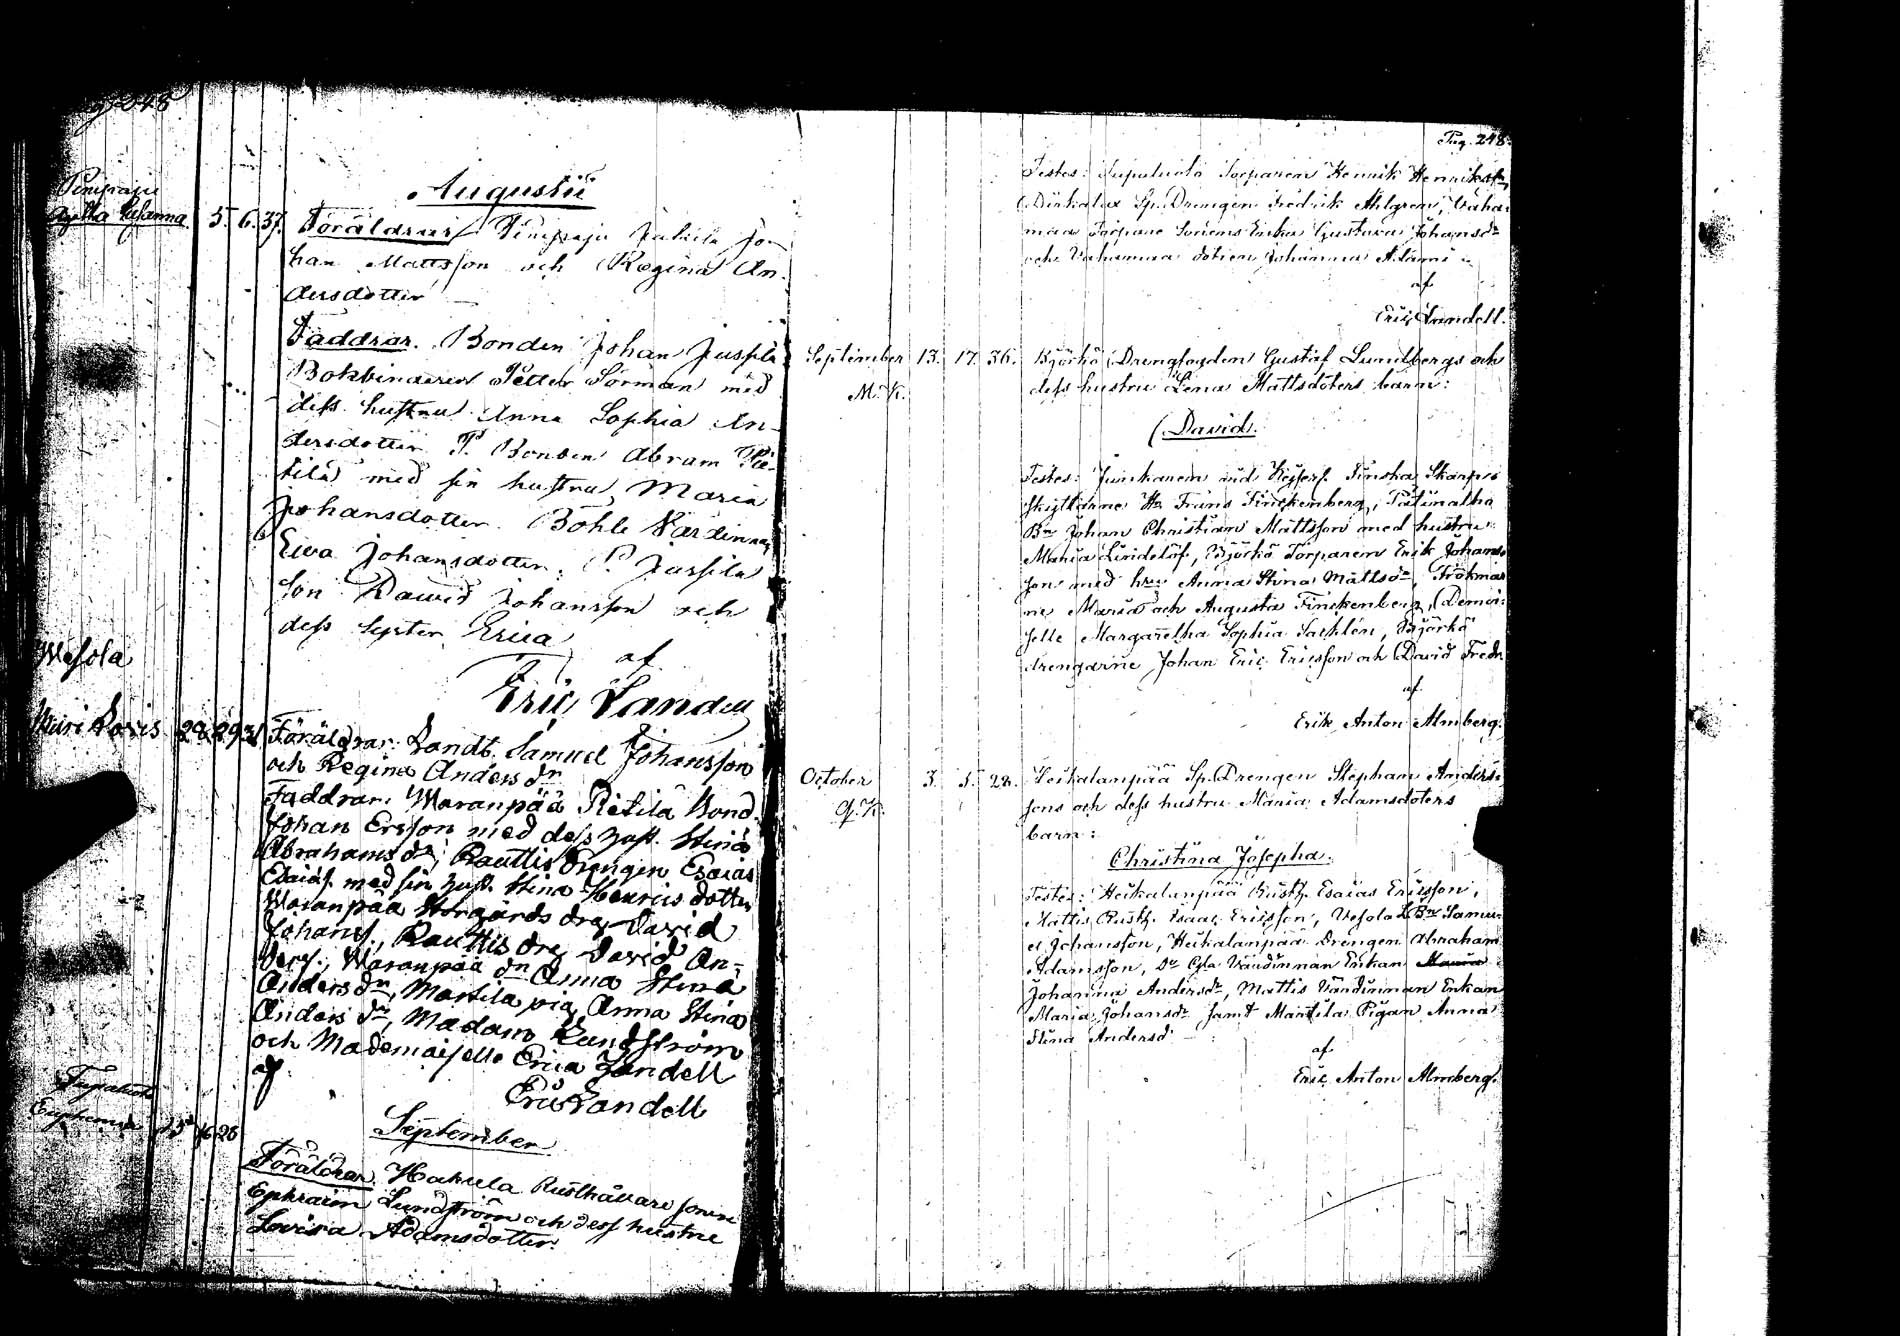 Augustii
Agatha Susanna 5. 6. 37. Föräldrar Jo-
han Mattsson och Regina An-
dersdotter
Faddrar. Bonden Johan Jussila
Bokbinderen Petter Sörman med
dess hustru Anna Sophia An-
dersdotter P. Bonden Abram Pie-
tilä med sin hustru Maria
Johansdotter. Böhle Värdinnan
Eva Johansdotter. P. Jussila
son David Johansson och
dess syster Erica
af
Eric Landell
Wesola
Mari Lovis 28 29 31 Föräldrar: Landb. Samuel Johansson
och Regina Anders dr
Faddrar: Waranpää Pietilä Bond.
Johan Ersson med dess hust. Stina
Abrahams dr, Rauttis drengen Esaias
Esaias. med sin hust. Stina Henricsdotter
Waranpää Storgårds dreng David
Johans., Rauttis dreng David An-
ders., Waranpää dn Anna Stina
Anders dr, Martila pig. Anna Stina
Anders dr, Madam Lundström
och Mademoiselle Erica Landell
af
Eric Landell
September
Föräldrar Hakula Rusthållare sonen
Ephraim Lundström och dess hustru
Lovisa Adamsdotter.
Pag. 248.
Testes: Supaluoto Torparen Henrik Henrikss.,
Sp. Drengen Fredrik Ahlgren, Vaha-
maa Torpare Soriens Enka Gustava Johansdr
och Vahamaa dotren Johanna Adams
af
Eric Landell.
September 13. 17. 36. Björkö Drengfogden Gustaf Lundbergs och
M. K. dess hustru Lena Mattsdoters barn:
David.
Testes: Junkaren vid Kejserl. Finska Skarps
skyttarne Hr Frans Finckenberg,
Bn Johan Christian Mattsson med hustru
Maria Lindelöf, Björkö Torparen Erik Johans-
son med hru Anna Stina Mattsdr, Fröknar-
ne Maria och Augusta Finckenberg, Demoi-
selle Margaretha Sophia Sachlén, Björkö
drengarne Johan Eric Ericsson och David Fredr.
af
Erik Anton Almberg.
October 3. 5. 28. Heikalanpää Sp. Drengen Stephan Anders-
Q. K. sons och dess hustru Maria Adamsdoters
barn:
Christina Josepha.
Testes: Heikalanpää Rusth. Esaias Ericsson,
Mattis Rusth. Isaac Ericsson, Vesola L. Bn Samu-
el Johansson, Heikalanpää Drengen Abraham
Adamsson, Värdinnan Enkan Maria
Johanna Andersdr, Mattis Värdinnan Enkan
Maria Johansdr samt Mantila Pigan Anna
Stina Andersd.
af
Eric Anton Almberg.